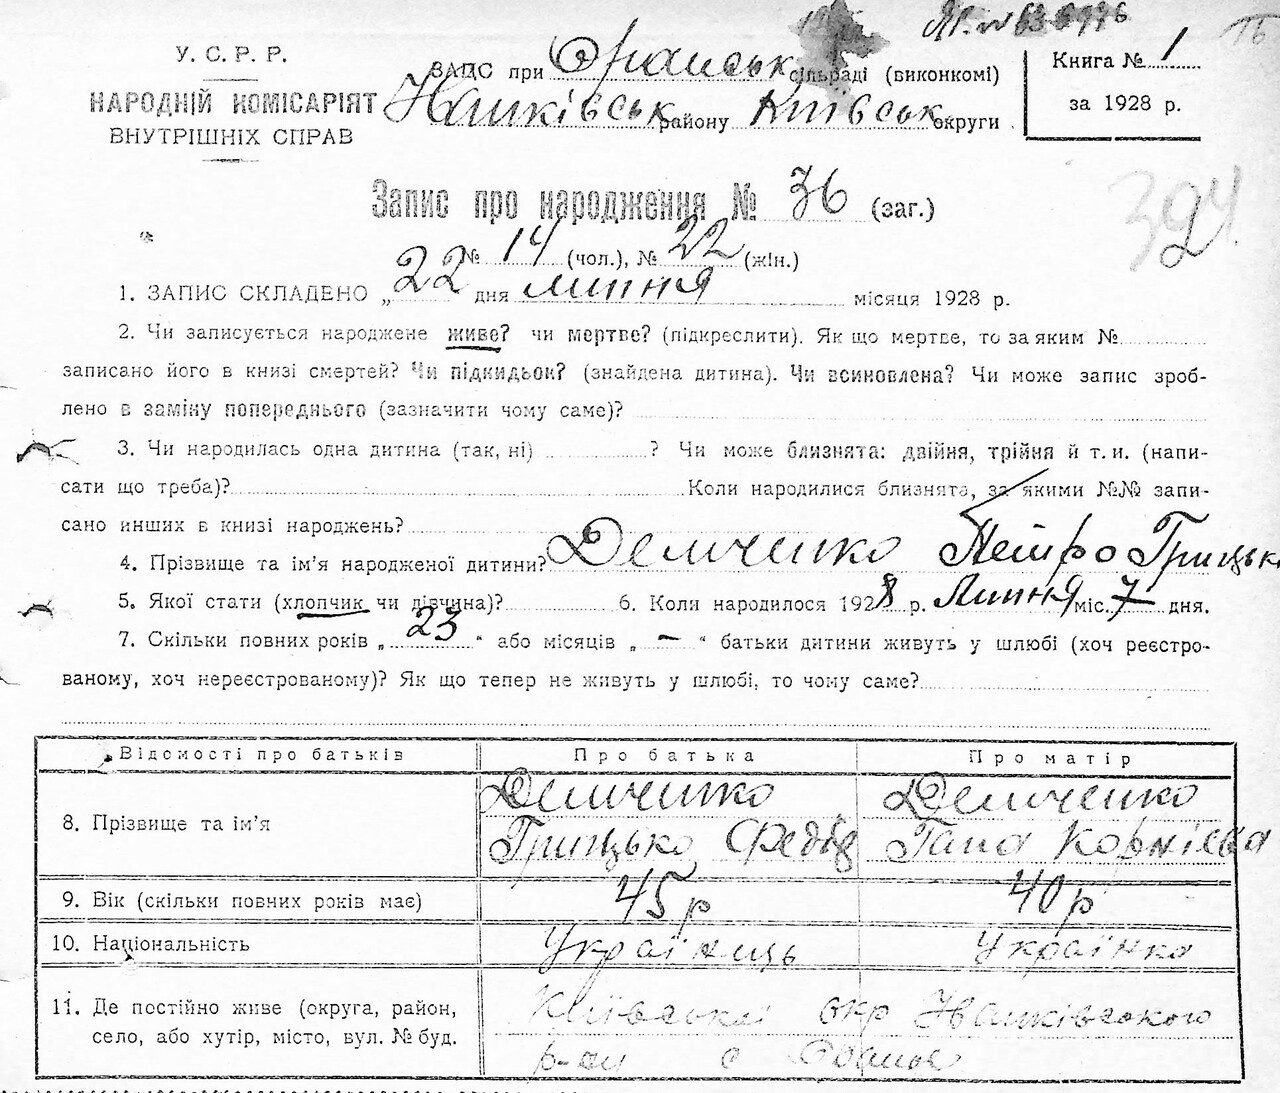 16
У. С. Р. Р.
НАРОДНІЙ КОМІСАРІЯТ
ВНУТРІШНІХ СПРАВ
ЗАПС при Оранськ сільраді (виконкомі)
Іванківськ району Київськ округи
Книга № 1
за 1928 р.
Запис про народження № 36 (заг.)
324
№ 14 (чол.), № 22 (жін.)
1. ЗАПИС СКЛАДЕНО „ 22 дня липня місяця 1928 р.
2. Чи записується народжене живе? чи мертве? (підкреслити). Як що мертве, то за яким №
записано його в книзі смертей? Чи підкидьок? (знайдена дитина). Чи всиновлена? Чи може запис зроб-
лено в заміну попереднього (зазначити чому саме)?
3. Чи народилась одна дитина (так, ні) ? Чи може близнята: двійня, трійня й т. и. (напи-
сати що треба)? Коли народилися близнята, за якими №№ запи-
сано инших в книзі народжень?
4. Прізвище та ім'я народженої дитини? Демченко Петро Грицьк
5. Якої стати (хлопчик чи дівчина)? 6. Коли народилося 1928 р. Липня міс. 7 дня.
7. Скільки повних років „ 23 “ або місяців „ — “ батьки дитини живуть у шлюбі (хоч реєстро-
ваному, хоч нереєстрованому)? Як що тепер не живуть у шлюбі, то чому саме?
Відомості про батьків Про батька Про матір
8. Прізвище та ім'я Демченко Грицько Федів Демченко Гана Корнієва
9. Вік (скільки повних років має) 45 р 40 р
10. Національність Українець Українка
11. Де постійно живе (округа, район, Київської окр Іванківського
село, або хутір, місто, вул. № буд. р-ну с Оране